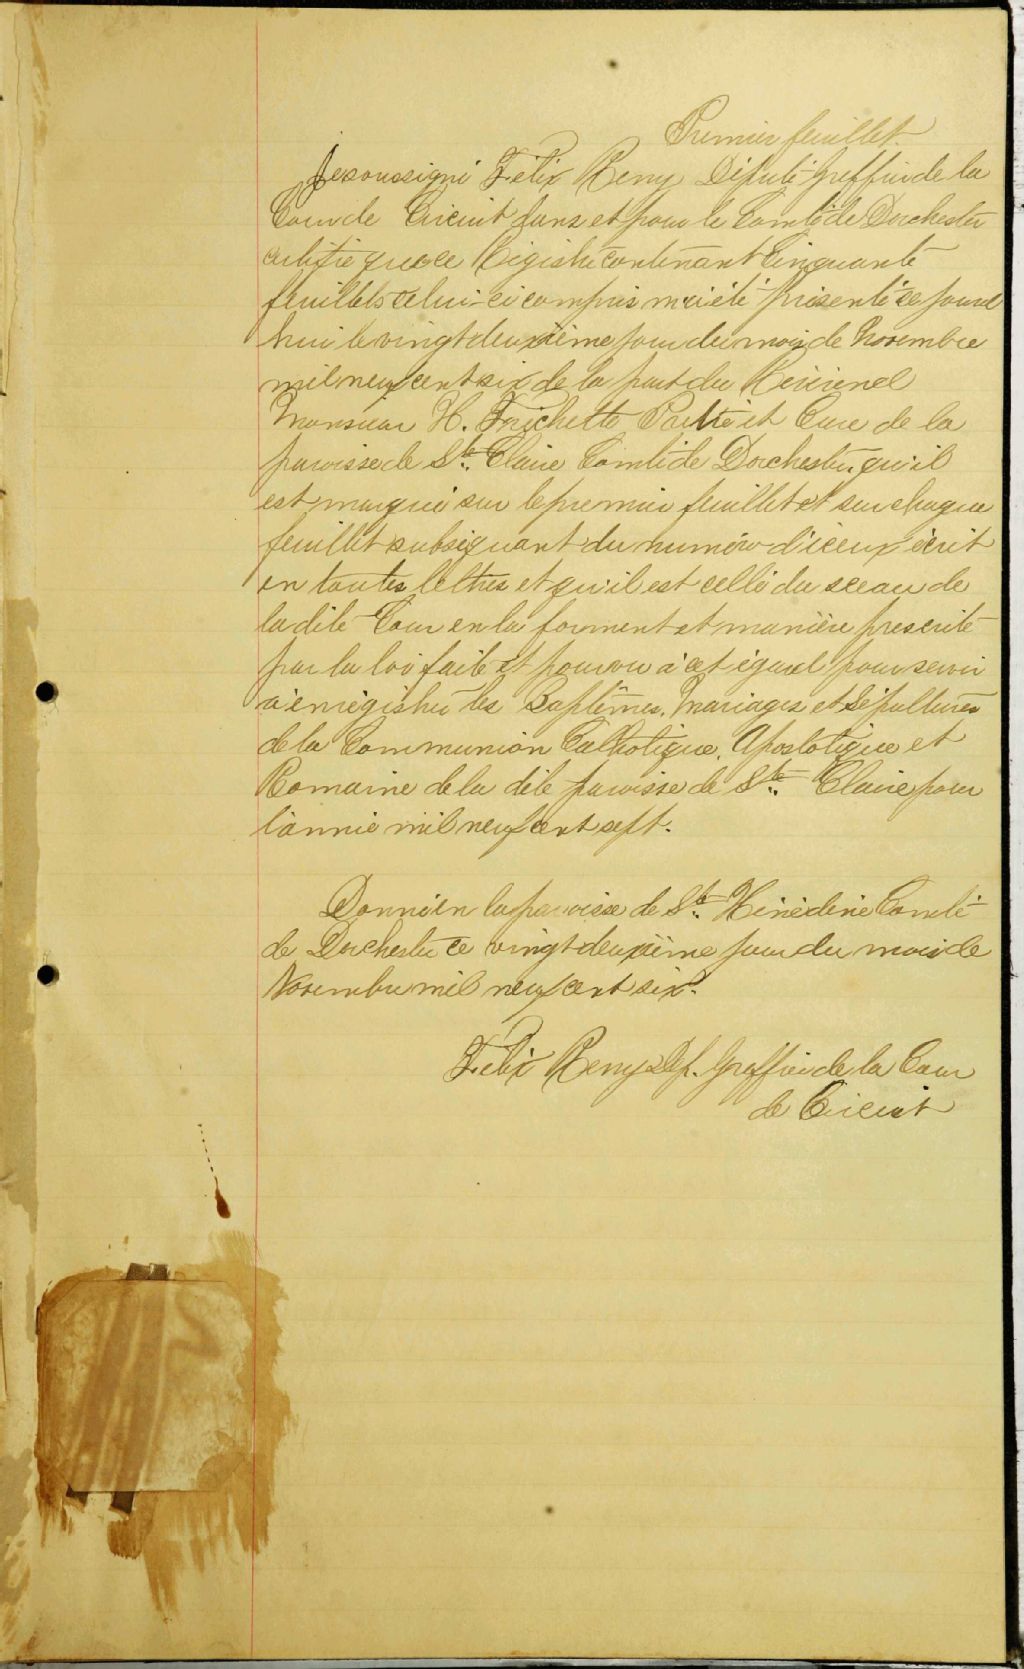 Premier feuillet.
Je soussigné Félix Remy Député-Greffier de la
Cour de Circuit dans et pour le Comté de Dorchester
certifie que ce Régistre contenant Cinquante
feuillets celui-ci compris m'a été présenté ce jourd
hui le vingt deuxième jour du mois de Novembre
mil neuf cent six de la part du Révérend
Monsieur H. Fréchette Prêtre et Curé de la
paroisse de Ste Claire Comté de Dorchester, qu'il
est marqué sur le premier feuillet et sur chaque
feuillet subséquant du numéro d'iceux écrit
en toutes lettres et qu'il est cellé du sceau de
la dite Cour en la forment et manière prescrite
par la loi faite et pourvu à cet égard pour servir
à enrégistrer les Baptêmes, Mariages et Sépultures
de la Communion Catholique, Apostolique et
Romaine de la dite paroisse de Ste Claire pour
l'année mil neuf cent sept.
Donné en la paroisse de Ste Hénédine Comté
de Dorchester ce vingt deuxième jour du mois de
Novembre mil neuf cent six.
Félix Remy Dép. Greffier de la Cour
de Circuit